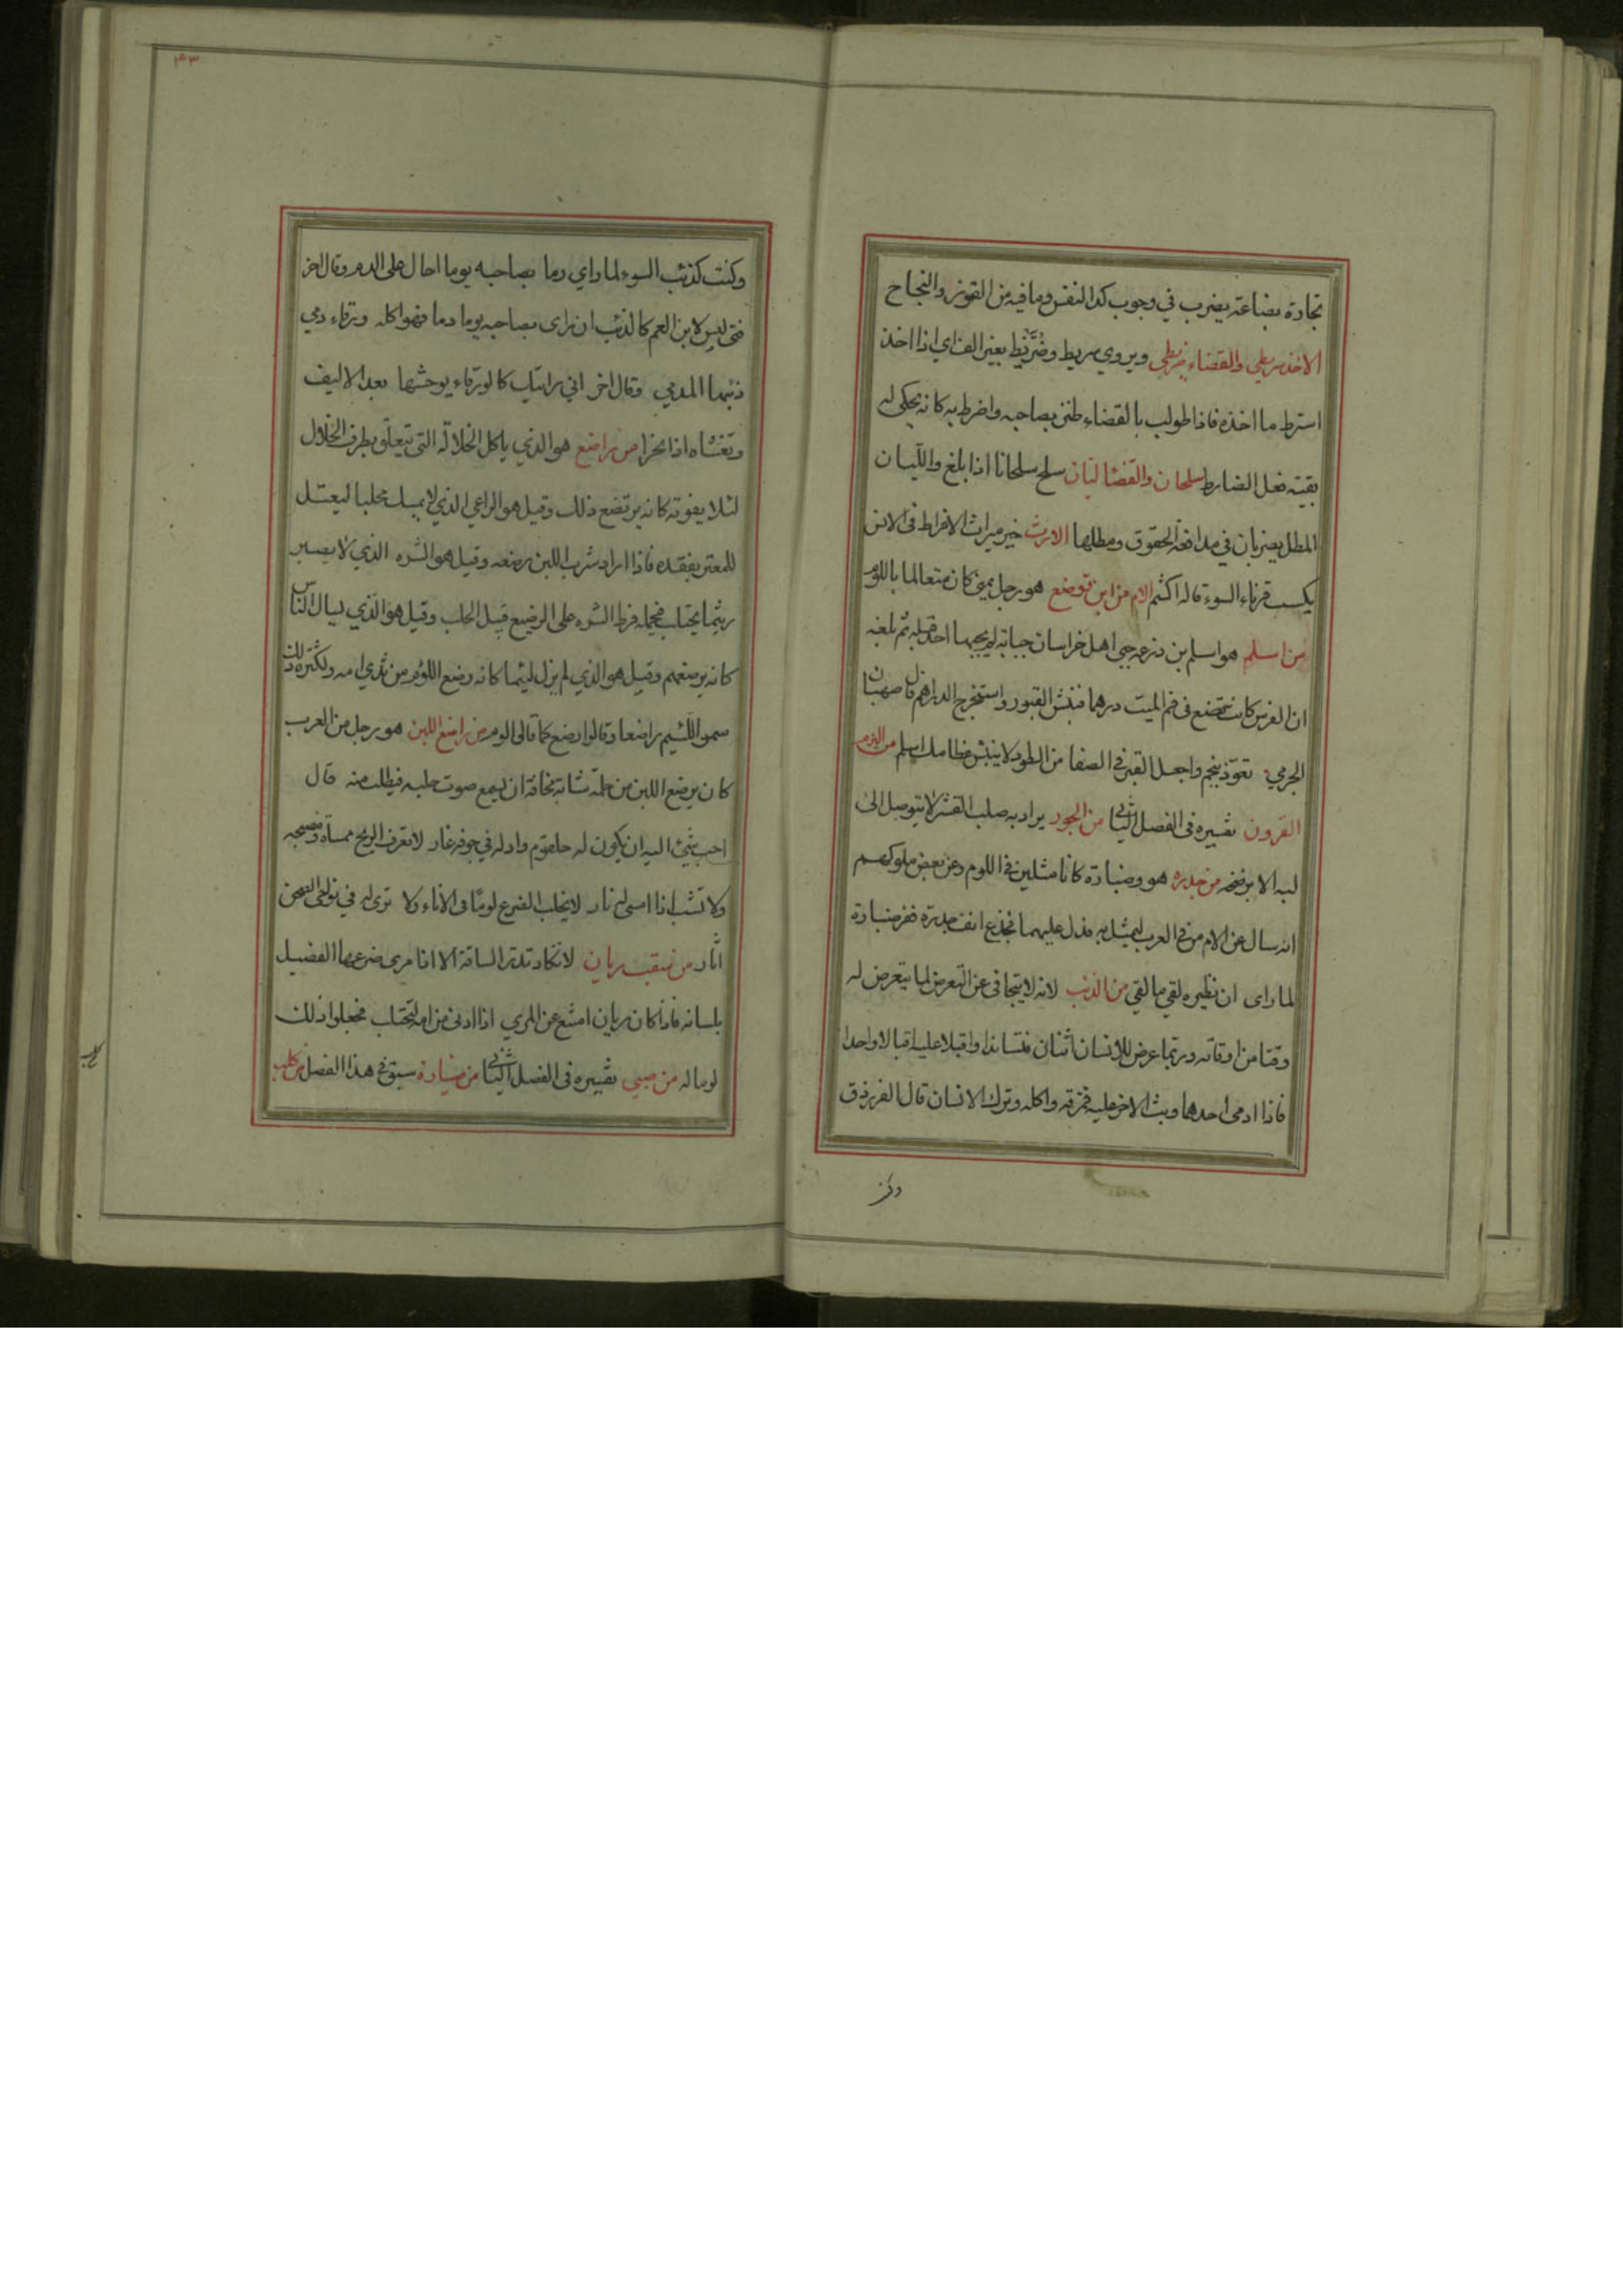 تجارة بضاعة يضرب في وجوب كد النفس وما فيه من الفوز والنجاح
الاخذ سريطي والقضاء ضريطي ويروي سريط وضُرَّيط بغير الف اي اذا اخذ
استرط ما اخذه فاذا طولب بالقضاء طنز بصاحبه واضرط به كانه يحكي له
بقيته فعل الضارط سلحان والقضا ليان سلح سلحانا اذا بلغ والليان
المطل يضربان في مدافعة الحقوق ومطلها خير ميراث الافراط في الانس
يكسب قرناء السوء قاله اكثم الام من ابن قوضع هو رجل كان متعالما باللوم
من اسلم هو اسلم بن زرعة جبى اهل خراسان جباية لم يجبها احد قبله ثم بلغه
ان الفرس كانت تضع في فم الميت درهما فنبش القبور واستخرج الدراهم قال صهبان
الجرمي تعوذ بنجم واجعل القبر في الصفا من الطود لا ينبش عظامك اسلم من البرم
القرون تفسيره في الفصل الثاني من الجوز يراد به صلب القشر لا يتوصل الى
لبه الا برضخه من جدره هو وضبارة كانا مثلين في اللوم وعن بعض ملوكهم
انه سال عن الام من في العرب ليمثل به فدل عليهما فجذع انف جدرة ففر ضبارة
لما راى ان نظيره لقي ما لقي من الذئب لانه لا يتجافى عن التعرض لما يتعرض له
وقتا من اوقاته وربما عرض للانسان اثنان فتساندا واقبلا عليه اقبالا واحدا
فاذا ادمى احدهما وثب الاخر عليه فمزقه واكله وترك الانسان قال الفرزدق
وكنت
وكنت كذئب السوء لما راي دما بصاحبه يوما احال على الدم وقال اخر
فتى ليس لابن العم كالذئب ان راى بصاحبه يوما دما فهو اكله
ذئبها المدمي وقال اخر اني رايتك كالورقاء يوحشها بعد الاليف
وتغشاه اذا نحرا من راضع هو الذي ياكل الخلالة التي تتعلق بطرف الخلال
لئلا يفوته كانه يرتضع ذلك وقيل هو الراعي الذي لا يمسك محلبا ليعتل
للمعتر بفقده فاذا اراد شرب اللبن رضعه وقيل هو الشره الذي لا يصبر
ريثما يحتلب فيحمله فرط الشره على الرضيع قبل الحلب وقيل هو الذي يسال الناس
كانه يرضعهم وقيل هو الذي لم يزل لئيما كانه رضع اللوم من ثدي امه ولكثرة ذلك
سموا اللئيم راضعا وقالوا رضع كما قالوا لوم من راضع اللبن هو رجل من العرب
كان يرضع اللبن من حلمة شاته مخافة ان يسمع صوت حلبه فيطلب منه قال
احب شيئ اليه ان يكون له حلقوم واد له في جوفه غار لا تعرف الريح ممساه ومصبحه
ولا تشب اذا امسى له نار لا يحلب الضرع لوما في الاناء ولا ترى له في نواحي الصحن
اثار من سقب ريان لا تكاد تدر الناقة الا اذا مرى ضرعها الفصيل
بلسانه فاذا كان ريان امتنع عن المري اذا ادني من امه لتحتلب فجعلوا ذلك
لوما له من صبي تفسيره في الفصل الثاني من ضبارة سبق في هذا الفصل من كلب